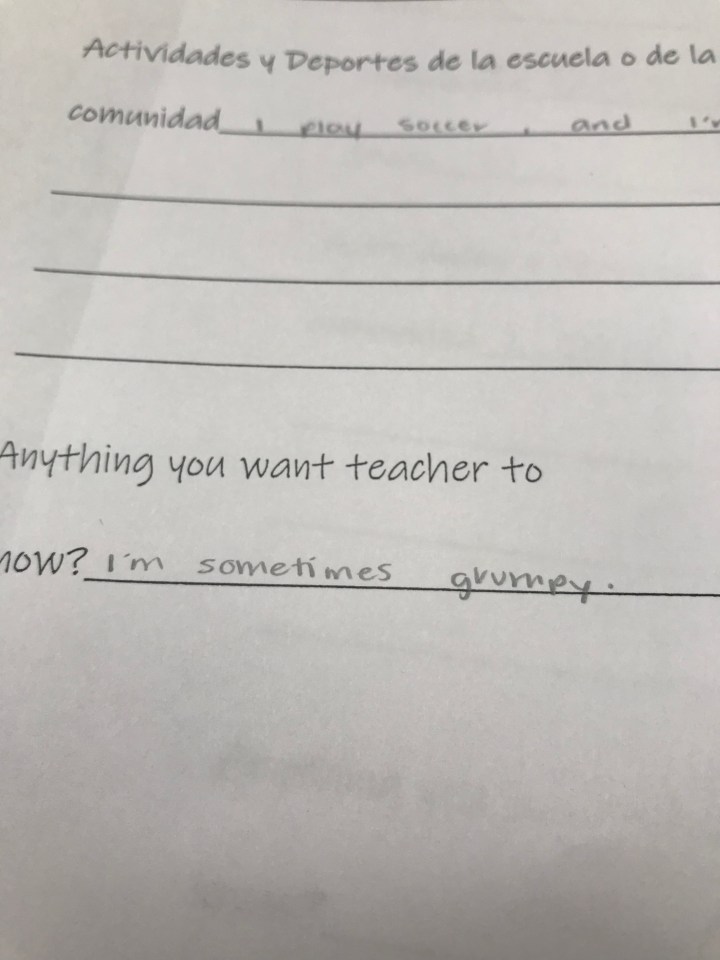 Actividades y Deportes de la escuela o de la
comunidad I play soccer, and I'm
Anything you want teacher to
now? I'm sometimes grumpy.